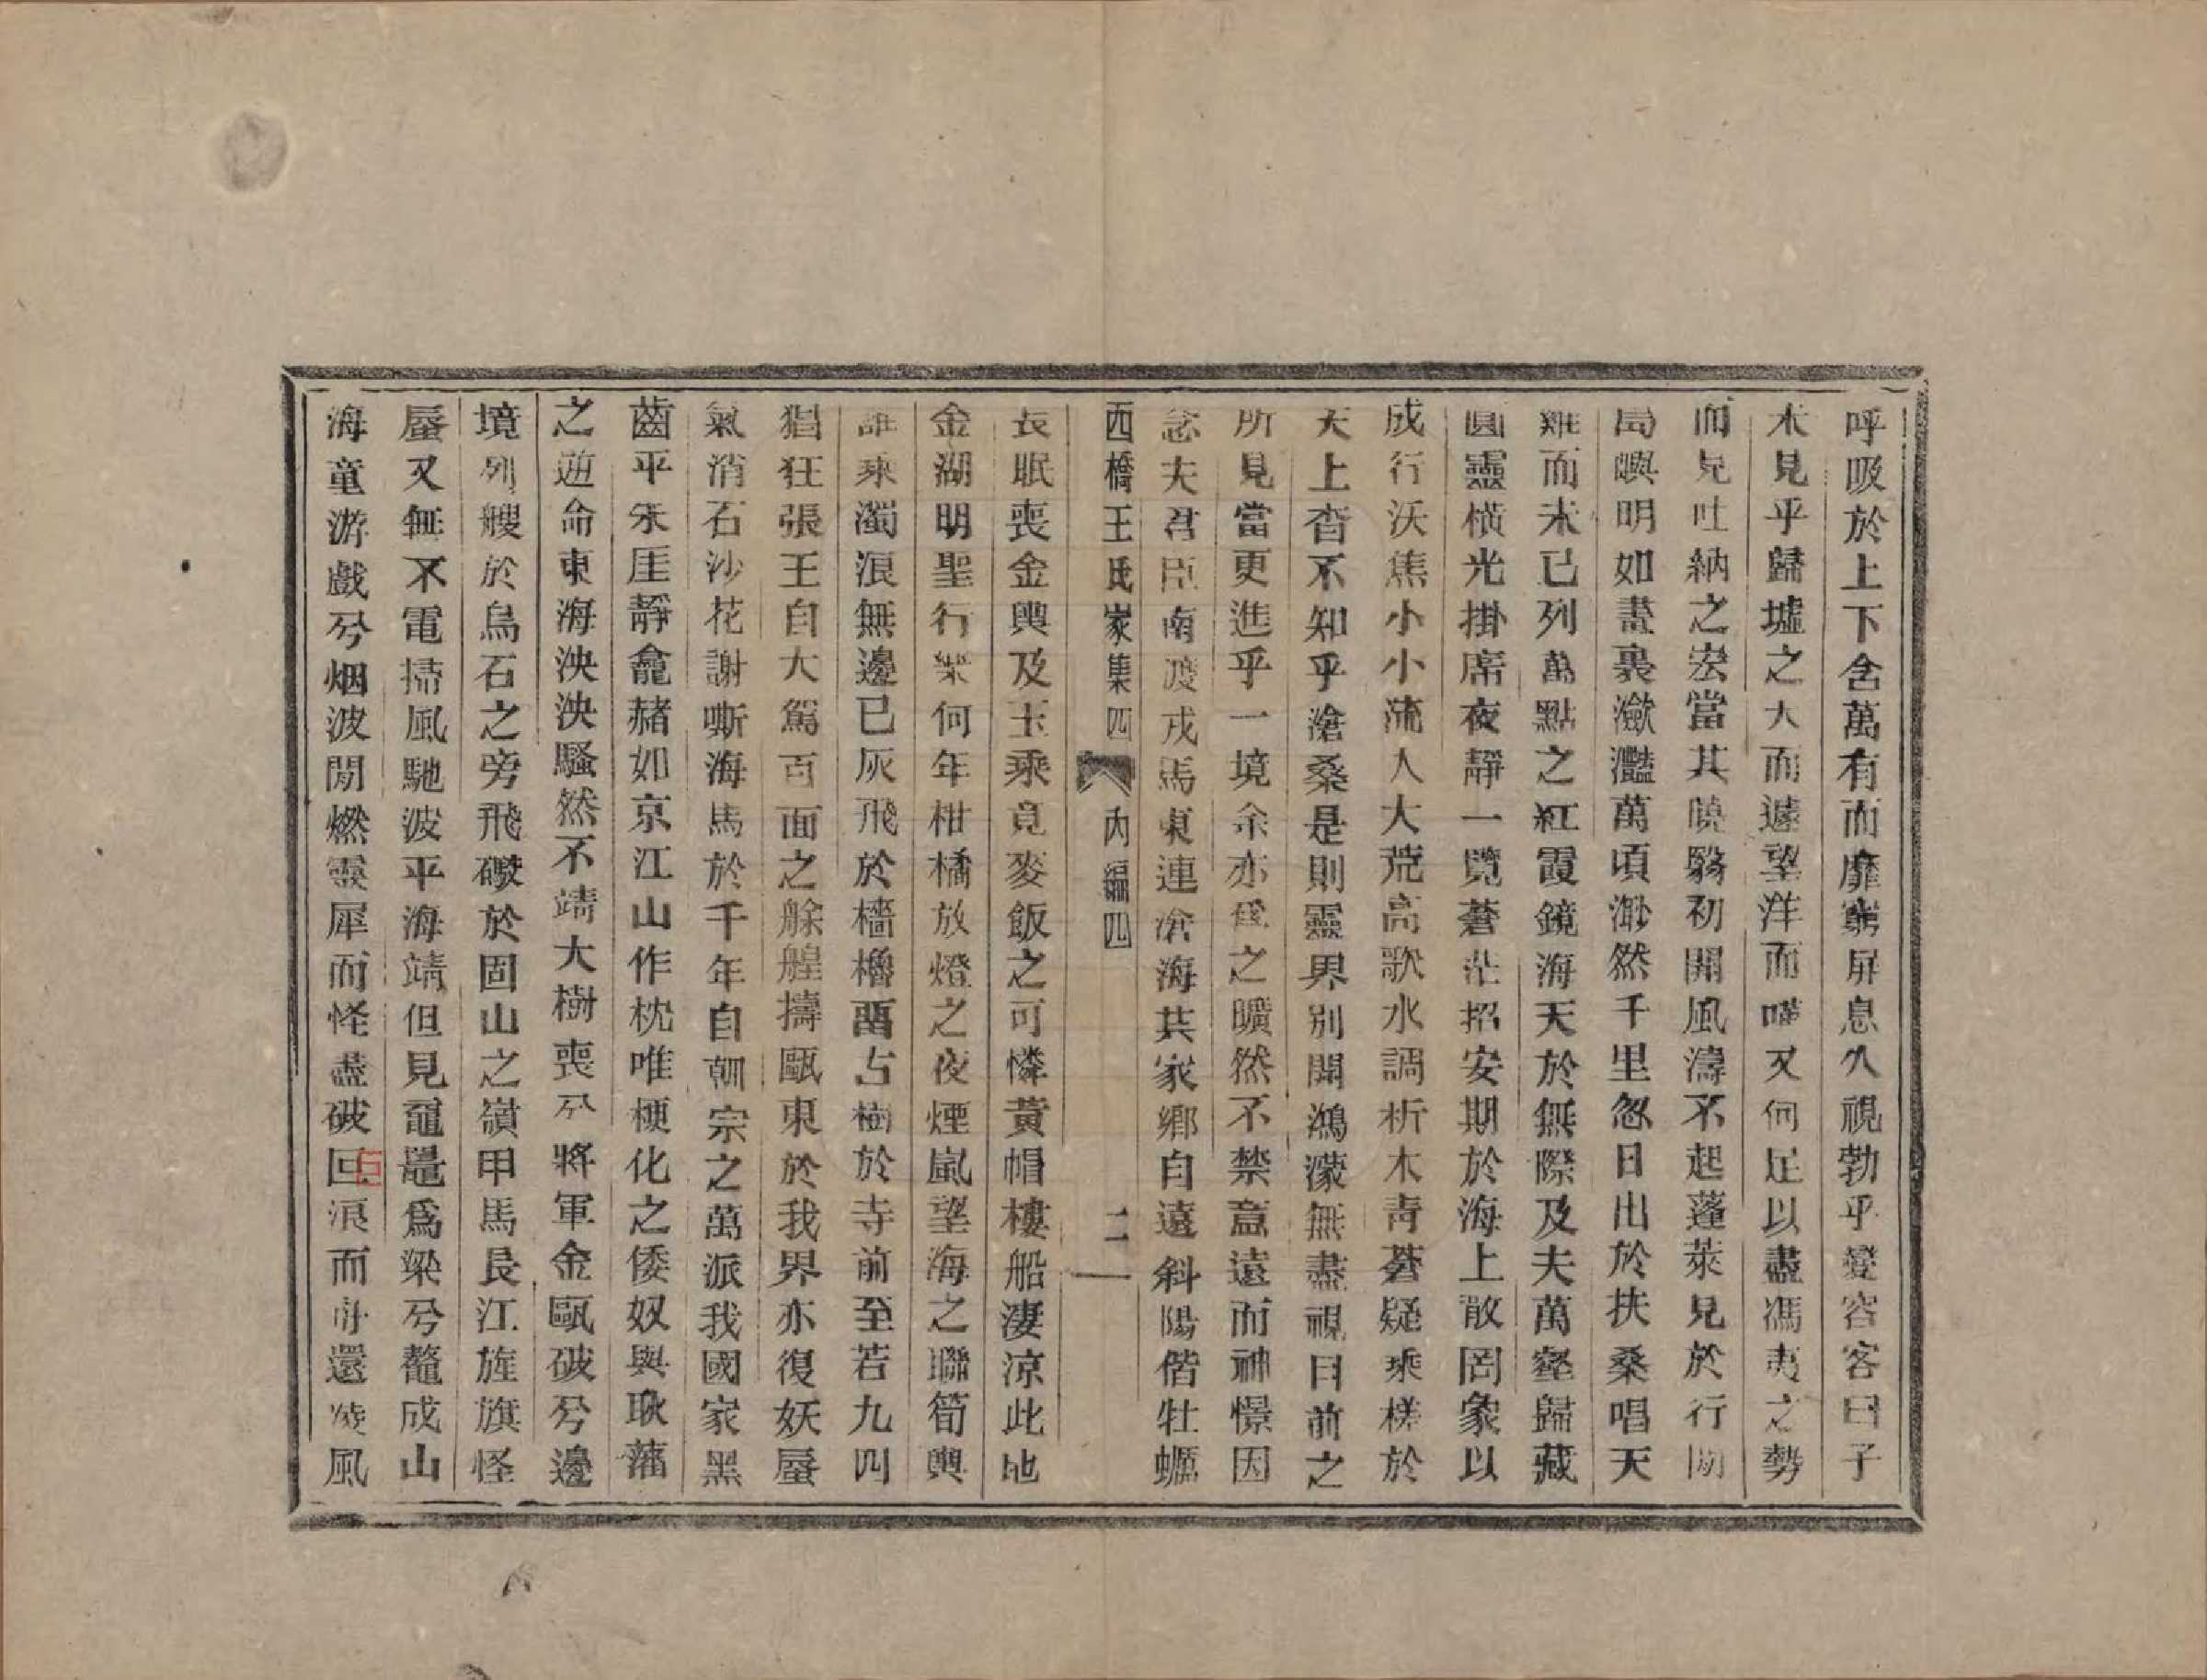 呼吸於上下含萬有而靡窮屏息久視勃乎變容客曰子
未見乎歸墟之大而遽望洋而嘆又何足以盡馮夷之勢
而見吐納之宏當其曉翳初開風濤不起蓬萊見於行間
島嶼明如畫裏瀲灩萬頃渺然千里忽日出於扶桑唱天
雞而未已列萬點之紅霞鏡海天於無際及夫萬壑歸藏
圓靈橫光掛席夜靜一覽蒼茫招安期於海上散罔象以
成行沃焦小小流人大荒高歌水調析木青蒼疑乘槎於
天上杳不知乎滄桑是則靈界別開鴻濛無盡視目前之
所見當更進乎一境余亦爲之曠然不禁意遠而神憬因
念夫君臣南渡戎馬東連滄海其家鄉自遠斜陽偕牡蠣
西橋王氏家集四 內編四 二
長眠喪金輿及玉乘竟麥飯之可憐黃帽樓船淒涼此地
金湖明聖行樂何年柑橘放燈之夜煙嵐望海之聯筍輿
誰乘濁浪無邊已灰飛於檣櫓啚占樹於寺前至若九四
猖狂張王自大駕百面之艅艎擣甌東於我界亦復妖蜃
氣消石沙花謝嘶海馬於千年自朝宗之萬派我國家黑
齒平氷厓靜龕赭如京江山作枕唯梗化之倭奴與耿藩
之逆命東海泱泱騷然不靖大樹喪兮將軍金甌破兮邊
境列艘於烏石之旁飛礮於固山之嶺甲馬長江旌旗怪
蜃又無不電掃風馳波平海靖但見黿鼉爲梁兮鼇成山
海童游戲兮烟波閒燃靈犀而怪盡破回浪而舟還凌風